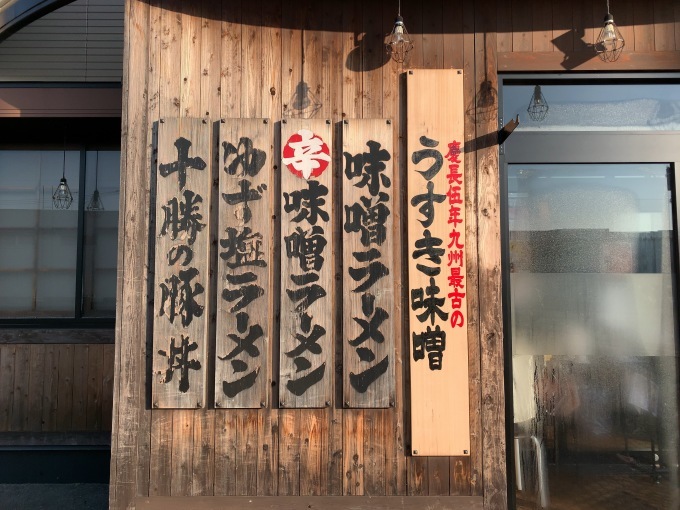 慶長伍年九州最古の
うすき味噌
味噌ラーメン
辛味噌ラーメン
ゆず塩ラーメン
十勝の豚丼